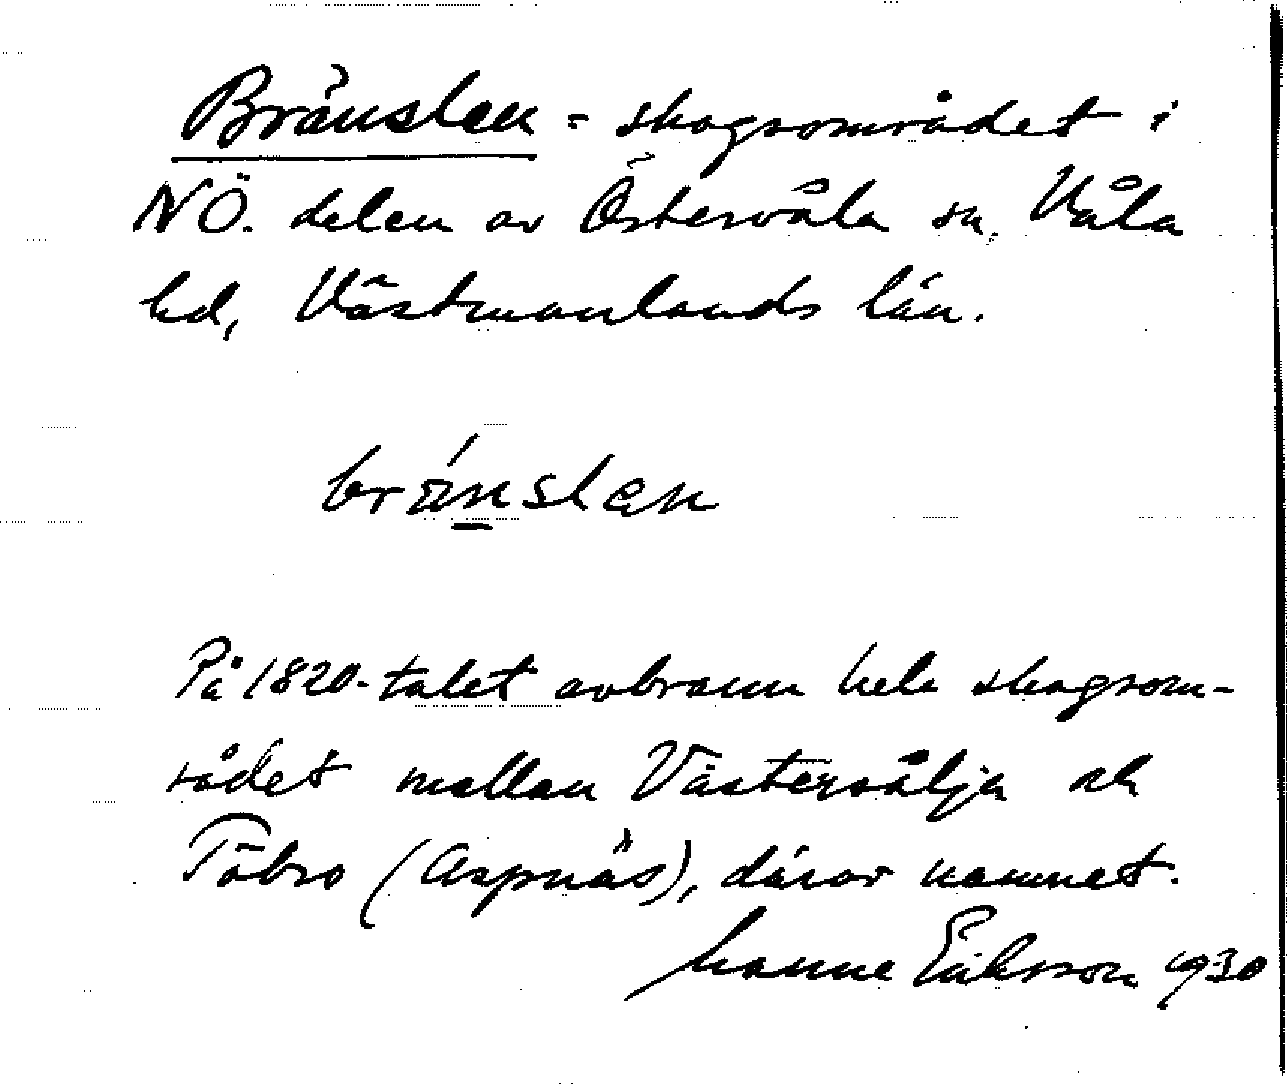 Bränslen = skogsområdet i
NÖ. delen av Östervåla sn, Våla
hd, Västmanlands län.
bränslen
På 1820-talet avbrann hela skogsom-
rådet mellan Västersälja och
Töbro (Aspnäs), därav namnet.
Hanna Eriksson 1930